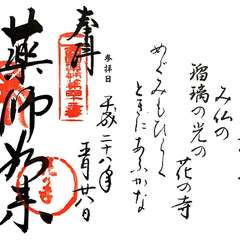 み仏の
瑠璃の光の
花の寺
めぐみもひらく
ときにあふかな
参拝日
平成二十八年
月廿八日
奉拝
薬師如来